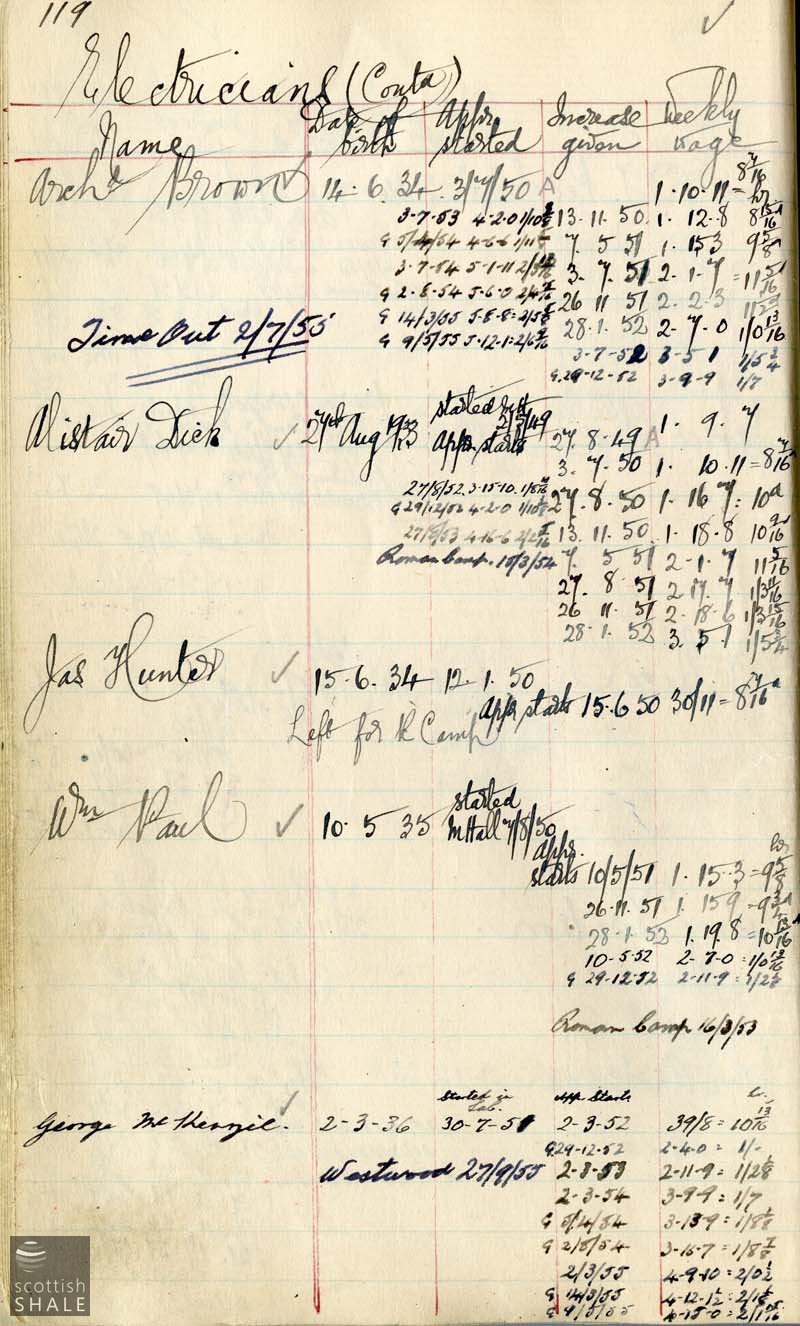 119
Electricians (Contd)
Name
Date of birth
Appr started
Increase given
Weekly wage
Archd Brown 14. 6. 34. 3/7/50 1. 10. 11 = 8 7/16 hr
3-7-53 4-2-0 1/10 13. 11. 50 1. 12. 8 8 15/16
G 5/4/54 4-6-6 7. 5 51 1. 15 3 9 5/8
3-7-54 5-1-11 3. 7. 51 2. 1. 7 = 11 5/16
G 2-8-54 5-6-0 26 11 51 2. 2. 3
G 14/3/55 5-8-8 = 2/5 28. 1. 52 2. 7. 0 1/0 13/16
Time Out 2/7/55
G 9/5/55 5-12-1 = 2/6
3-7-52 3-5 1 1/5 3/4
G. 29-12-52 3-9-9 1/7
Alistair Dick 27th Aug 1933 started
Appr starts 27. 8. 49 1. 9. 7
3. 7. 50 1. 10. 11 = 8 7/16
27/8/52 3-15-10 27. 8. 50 1. 16 7 = 10d
G 29/12/52 4-2-0 13. 11. 50 1. 18. 8 10 9/16
27/8/53 4-16-6 7. 5 51 2-1. 7 11 5/16
Roman Camp. 15/3/54
27. 8 51 2. 17. 7 1/3 11/16
26 11. 51 2. 18. 6 1/3 15/16
28. 1. 52 3. 5. 1 1/5 3/4
Jas Hunter 15. 6. 34 12. 1. 50
Appr starts 15. 6 50 30/11 = 8 7/16d
Left for R Camp
Wm Paul 10. 5 35 started M Hall 7/8/50
hr
Appr. starts 10/5/51 1. 15. 3 = 9 5/8
26. 11. 51 1. 15 9 = 9 3/4
28. 1. 52 1. 19. 8 = 10 13/16
10-5-52 2-7-0 = 1/0 13/16
G 29-12-52 2-11-9 = 1/2 1/8
Roman Camp 16/3/53
started in Lab. App Starts
George McKenzie. 2-3-36 30-7-51 2-3-52 39/8 = 10 13/16
G. 29-12-52 2-4-0 = 1/-
Westwood 27/9/55 2-3-53 2-11-9 = 1/2 1/8
2-3-54 3-9-9 = 1/7
G 5/4/54 3-13-9 = 1/8 1/8
G 2/8/54 3-15-7 = 1/8
2/3/55 4-9-10 = 2/0 1/2
G 14/3/55 4-12-1 1/2 = 2/1
G 9/5/55 4-15-0 = 2/1
scottish
SHALE